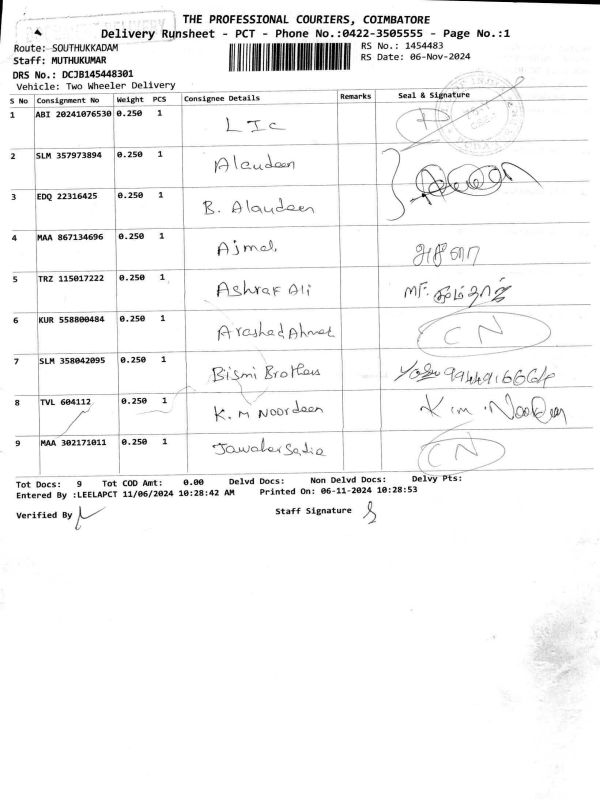 THE PROFESSIONAL COURIERS, COIMBATORE
Delivery Runsheet - PCT - Phone No.:0422-3505555 - Page No.:1
Route: SOUTHUKKADAM
RS No.: 1454483
Staff: MUTHUKUMAR
RS Date: 06-Nov-2024
DRS No.: DCJB145448301
Vehicle: Two Wheeler Delivery
S No Consignment No Weight PCS Consignee Details Remarks Seal & Signature
1 ABI 20241076530 0.250 1 LIC
2 SLM 357973894 0.250 1 Alaudeen
3 EDQ 22316425 0.250 1 B. Alaudeen
4 MAA 867134696 0.250 1 Ajmal
5 TRZ 115017222 0.250 1 Ashraf Ali
6 KUR 558800484 0.250 1 Arashad Ahmat CN
7 SLM 358042095 0.250 1 Bismi Brothers
8 TVL 604112 0.250 1 K.M Noordeen K.m. Noordeen
9 MAA 302171011 0.250 1 Jawahar Sadia CN
Tot Docs: 9 Tot COD Amt: 0.00 Delvd Docs: Non Delvd Docs: Delvy Pts:
Entered By :LEELAPCT 11/06/2024 10:28:42 AM Printed On: 06-11-2024 10:28:53
Verified By Staff Signature